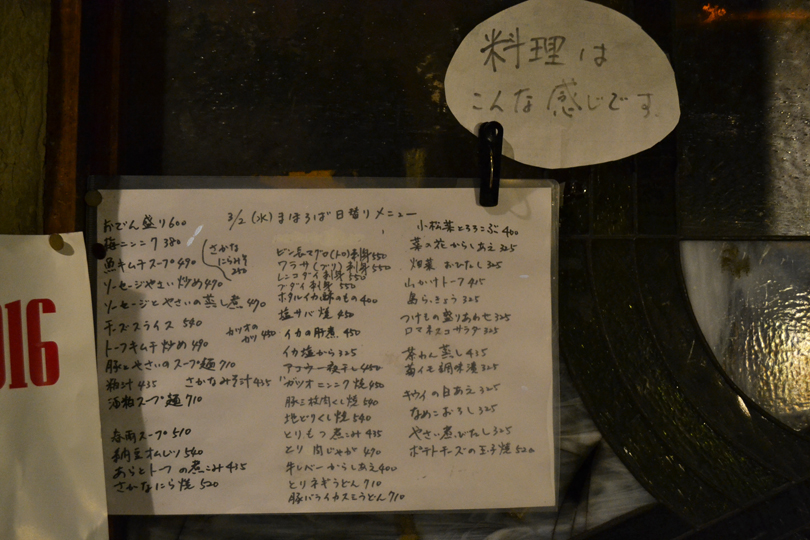 料理は
こんな感じです。
3/2(水)まほろば日替りメニュー
おでん盛り600
梅ニンニク380
魚キムチスープ490
ソーセージやさい炒め490
ソーセージとやさいの蒸し煮490
チーズスライス 590
トーフキムチ炒め490
豚とやさいのスープ麺710
粕汁435
さかなみそ汁435
酒粕スープ麺710
春雨スープ510
納豆オムレツ540
あらとトーフの煮こみ415
さかなにら焼520
さかな
にらみそ
カツオの
カリ450
ビン長マグロ(トロ)刺身550
ワラサ(ブリ)刺身550
レンコダイ刺身550
ブダイ刺身550
ホタルイカ酢のもの400
塩サバ焼450
イカの肝煮450
イカ塩から325
アコウ一夜干し450
カツオニンニク焼450
豚三枚肉くし焼590
地どりくし焼540
とりもつ煮こみ435
とり肉じゃが490
牛レバーからしあえ400
とりネギうどん710
豚バライカスミうどん710
小松菜とろろこぶ400
菜の花からしあえ325
畑菜おひたし325
山かけトーフ415
島らっきょう325
つけもの盛りあわせ325
ロマネスコサラダ325
茶わん蒸し415
菊イモ調味漬325
キウイの白あえ325
なめこおろし325
やさい煮びたし325
ポテトチーズの玉子焼520
016